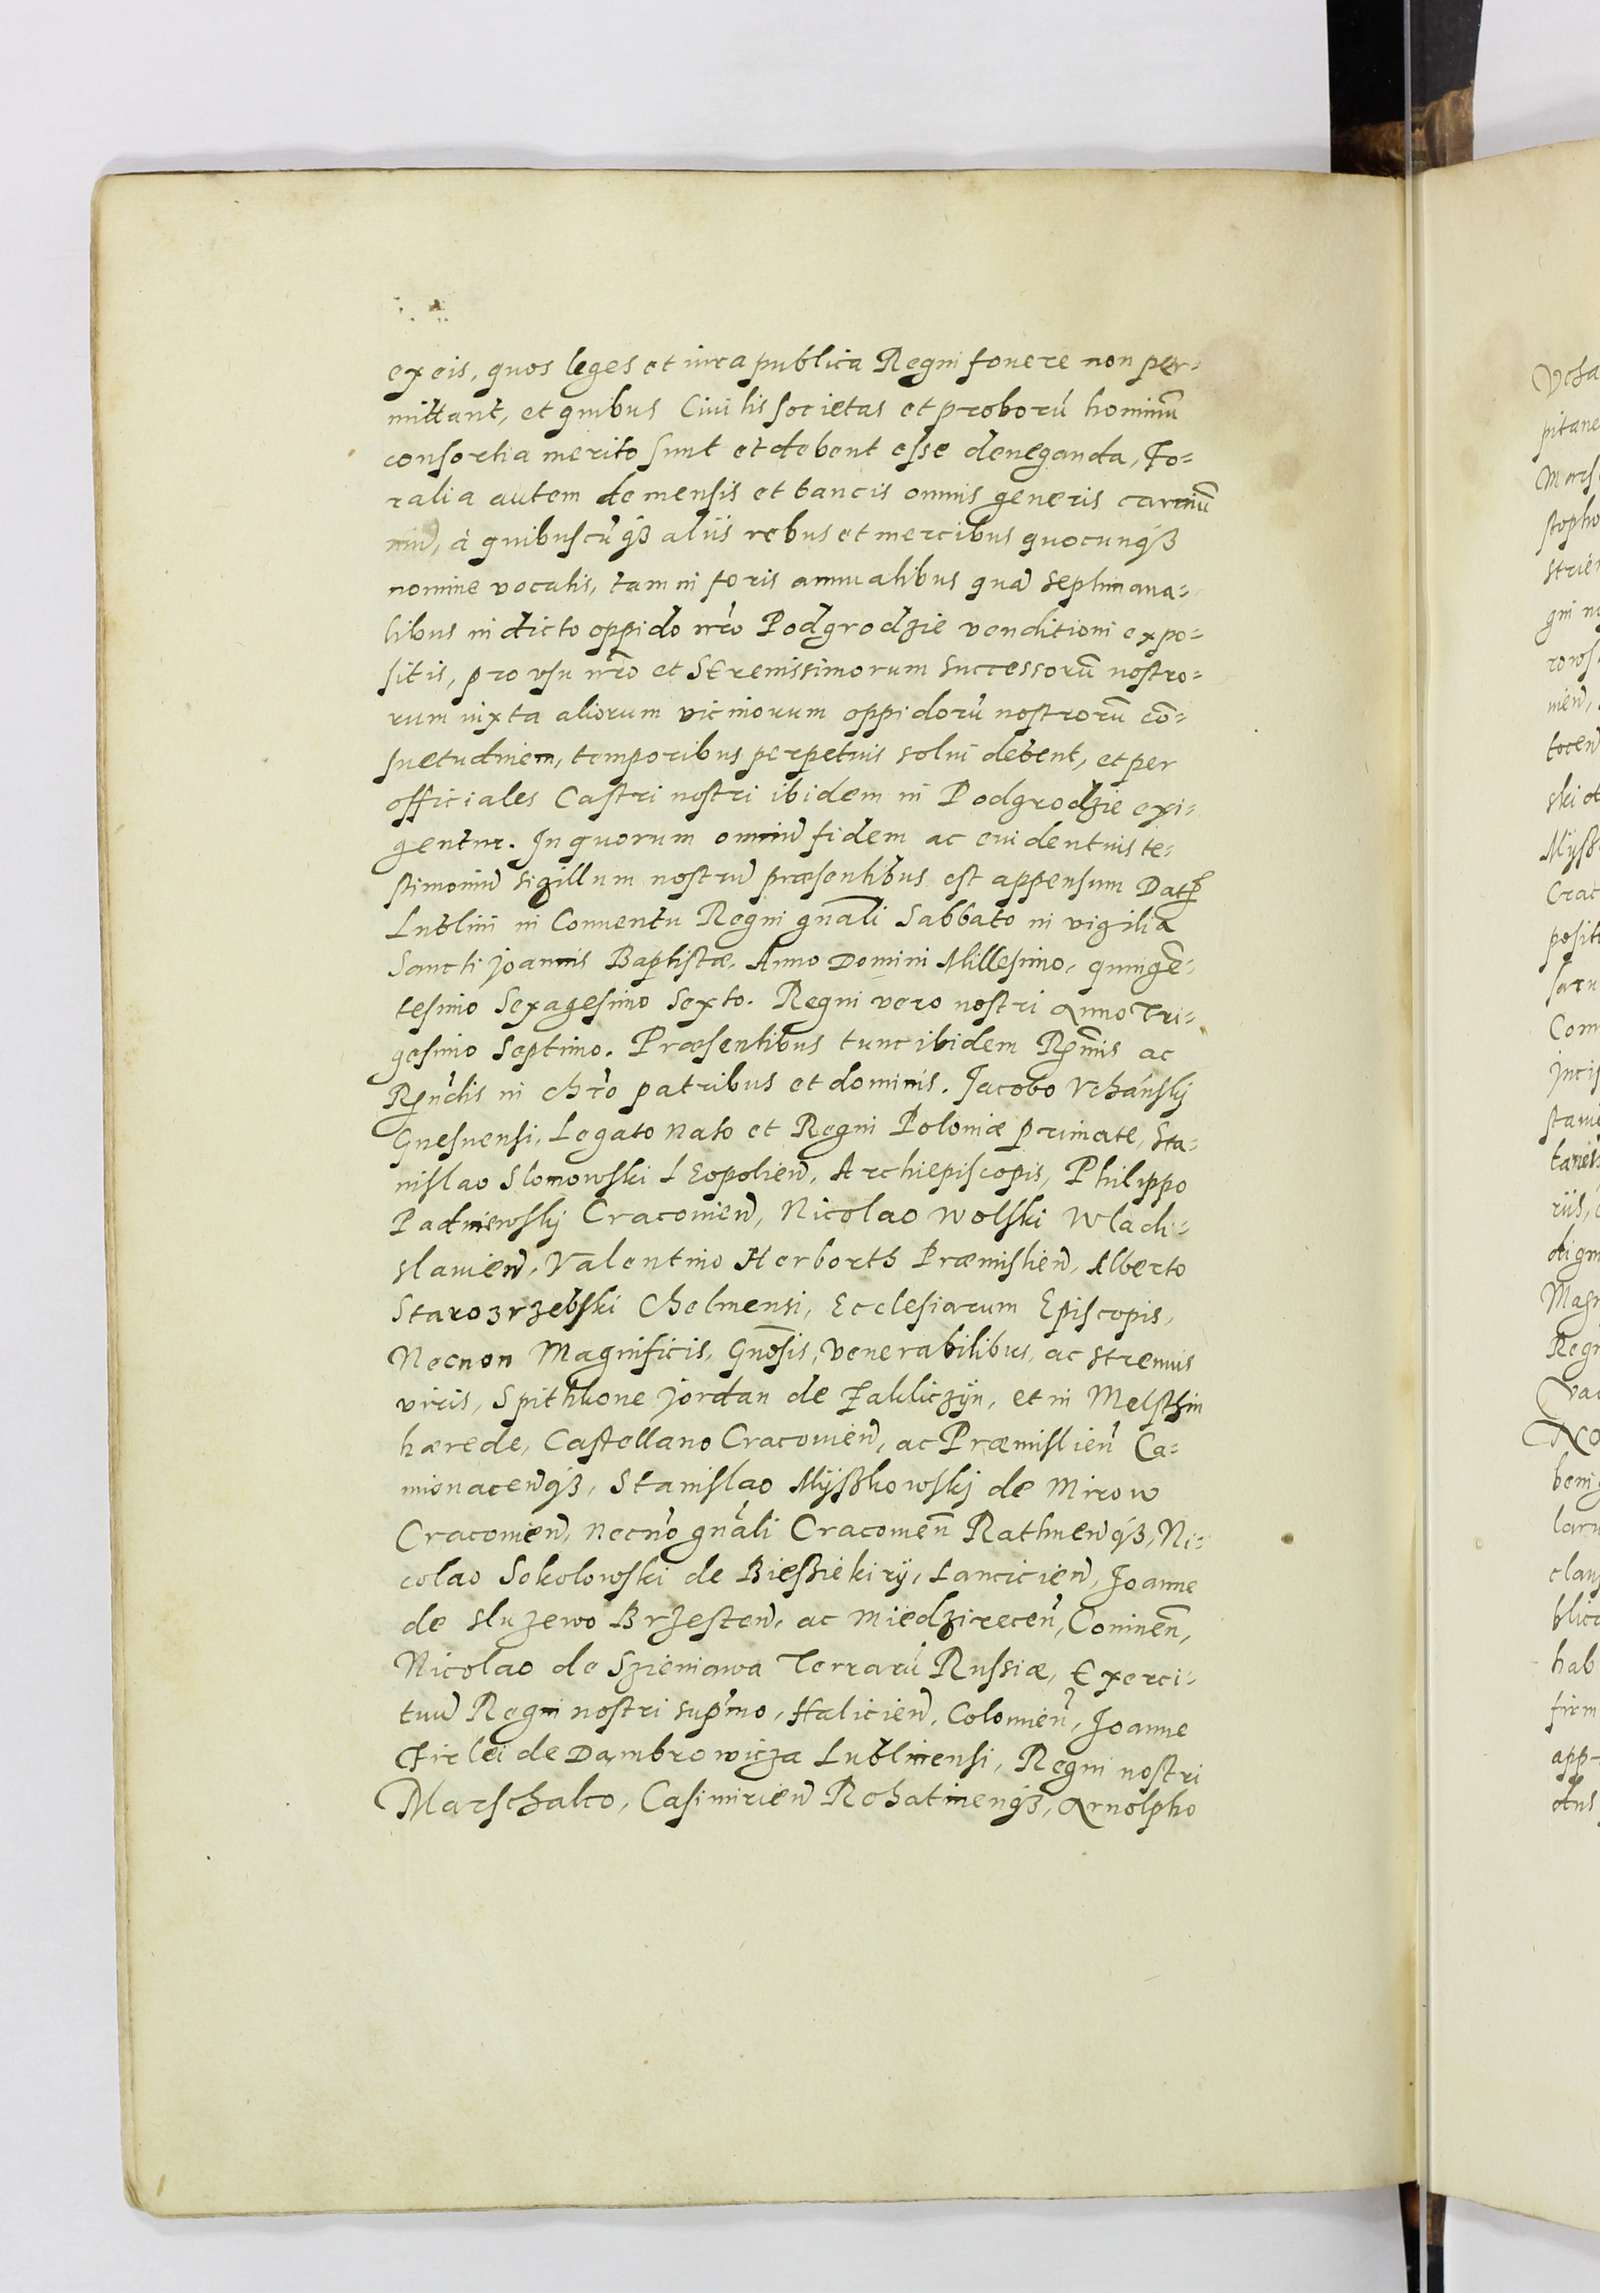 ex eis, quos leges et iura publica Regni fouere non per-
mittant, et quibus Ciuilis societas et proborũ hominũ
consortia merito sunt et debent esse deneganda, Fo-
ralia autem de mensis et bancis omnis generis carniũ
à quibuscũqȝ aliis rebus et mercibus quocunqȝ
nomine vocatis, tam in foris annualibus quã septimana-
libus in dicto oppido nr̃o Podgrodzie venditioni expo-
sitis, pro vsu nr̃o et Serenissimorum successorũ nostro-
rum iuxta aliorum vicinorum oppidorũ nostrorũ cõ-
suetudinem, temporibus perpetuis solui debent, et per
officiales Castri nostri ibidem in Podgrodzie exi-
gentur. In quorum omniũ fidem ac euidentius te-
stimoniũ sigillum nostrũ præsentibus est appensum Dat
Lublini in Conuentu Regni gnãli Sabbato in vigilia
Sancti Joannis Baptistæ, Anno Domini Millesimo, quingẽ-
tesimo Sexagesimo Sexto. Regni vero nostri Anno Tri-
gesimo Septimo. Præsentibus tunc ibidem Rẽmis ac
Rñdis in chr̃o patribus et dominis. Jacobo Vchánskÿ
Gnesnensi, Legato nato et Regni Poloniæ primate, Sta-
nislao Slomowski Leopolieñ, Archiepiscopis, Philippo
Padniewskÿ Cracouieñ, Nicolao Wolski Wladi-
slauieñ, Valentino Herborth Præmislieñ, Alberto
Starozrzebski Chelmensi, Ecclesiarum Episcopis,
Necnon Magnificis, Gnõsis, Venerabilibus, ac strenuis
viris, Spithkone Jordan de Zakliczÿn, et in Melsthin
hærede, Castellano Cracouieñ, ac Præmislieñ Ca-
mionaceñqȝ, Stanislao Mÿßkowskÿ de Mirow
Cracouieñ, necñõ gnãli Cracouieñ Rathneñqȝ, Ni-
colao Sokolowski de Bießiekirÿ, Lancicieñ, Joanne
de Sluzewo Brzesteñ, ac Miedzireceñ, Conineñ,
Nicolao de Szieniawa Terrarũ Russiæ, Exerci-
tuũ Regni nostri supr̃mo, Halicieñ, Colomieñ, Joanne
Firlei de Dambrowicza Lublinensi, Regni nostri
Marschalco, Casimirieñ Rohatineñqȝ, Arnolpho